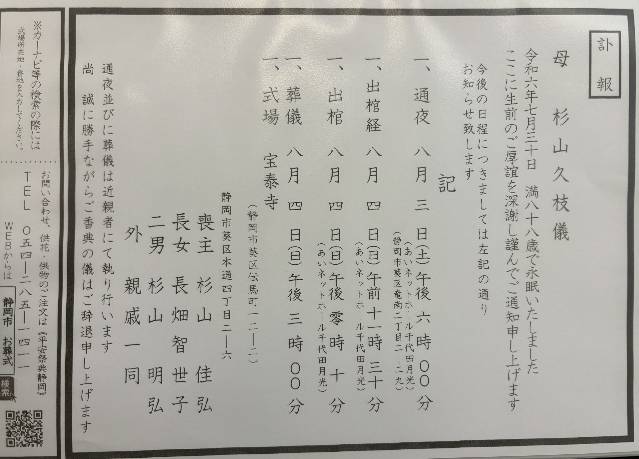 訃報
母 杉山久枝儀
令和六年七月三十日 満八十八歳で永眠いたしました
ここに生前のご厚誼を深謝し謹んでご通知申し上げます
今後の日程につきましては左記の通り
お知らせ致します
記
一、通夜 八月 三日(土)午後 六時〇〇分
(あいネットホール千代田月光)
(静岡市葵区竜南二丁目二-二九)
一、出棺経 八月 四日(日)午前十一時三十分
(あいネットホール千代田月光)
一、出棺 八月 四日(日)午後零時 十分
(あいネットホール千代田月光)
一、葬儀 八月 四日(日)午後 三時〇〇分
一、式場 宝泰寺
(静岡市葵区伝馬町一二-二)
静岡市葵区本通四丁目二-六
喪主 杉山 佳弘
長女 長畑智世子
二男 杉山 明弘
外 親戚一同
通夜並びに葬儀は近親者にて執り行います
尚 誠に勝手ながらご香典の儀はご辞退申し上げます
※カーナビ等の検索の際には
お問い合わせ、供花・供物のご注文は《平安祭典静岡》
TEL 〇五四-二八五-一四一一
WEBからは 静岡市 お葬式 検索